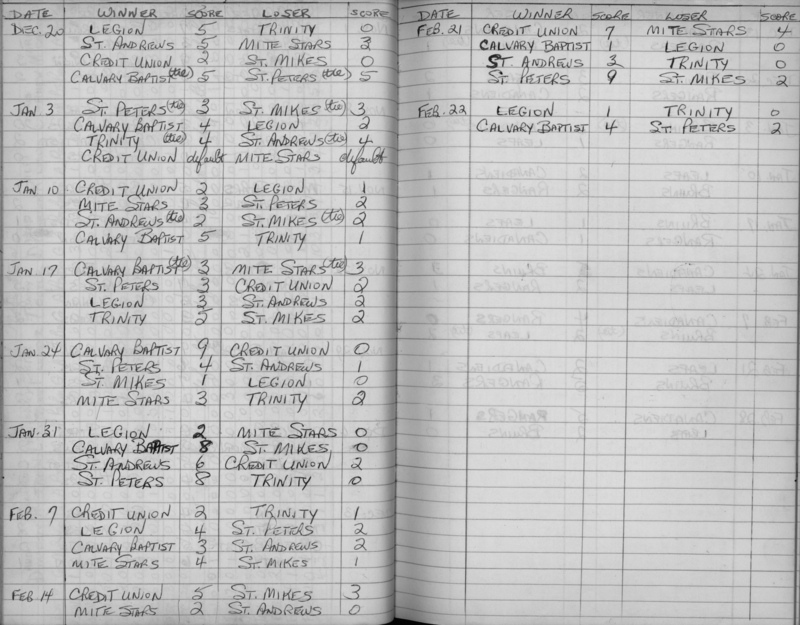 DATE WINNER SCORE LOSER SCORE
DEC. 20 LEGION 5 TRINITY 0
ST. ANDREWS 5 MITE STARS 3
CREDIT UNION 2 ST. MIKES 0
CALVARY BAPTIST (tie) 5 ST. PETERS (tie) 5
JAN 3 ST. PETERS (tie) 3 ST. MIKES (tie) 3
CALVARY BAPTIST 4 LEGION 2
TRINITY (tie) 4 ST. ANDREWS (tie) 4
CREDIT UNION default MITE STARS default
JAN 10 CREDIT UNION 2 LEGION 1
MITE STARS 3 ST. PETERS 2
ST. ANDREWS (tie) 2 ST. MIKES (tie) 2
CALVARY BAPTIST 5 TRINITY 1
JAN 17 CALVARY BAPTIST (tie) 3 MITE STARS (tie) 3
ST. PETERS 3 CREDIT UNION 2
LEGION 3 ST. ANDREWS 2
TRINITY 5 ST. MIKES 2
JAN. 24 CALVARY BAPTIST 9 CREDIT UNION 0
ST. PETERS 4 ST. ANDREWS 1
ST. MIKES 1 LEGION 0
MITE STARS 3 TRINITY 2
JAN. 31 LEGION 2 MITE STARS 0
CALVARY BAPTIST 8 ST. MIKES 0
ST. ANDREWS 6 CREDIT UNION 2
ST. PETERS 8 TRINITY 0
FEB. 7 CREDIT UNION 2 TRINITY 1
LEGION 4 ST. PETERS 2
CALVARY BAPTIST 3 ST. ANDREWS 2
MITE STARS 4 ST. MIKES 1
FEB 14 CREDIT UNION 5 ST. MIKES 3
MITE STARS 2 ST. ANDREWS 0
DATE WINNER SCORE LOSER SCORE
FEB. 21 CREDIT UNION 7 MITE STARS 4
CALVARY BAPTIST 1 LEGION 0
ST. ANDREWS 3 TRINITY 0
ST. PETERS 9 ST. MIKES 2
FEB. 22 LEGION 1 TRINITY 0
CALVARY BAPTIST 4 ST. PETERS 2